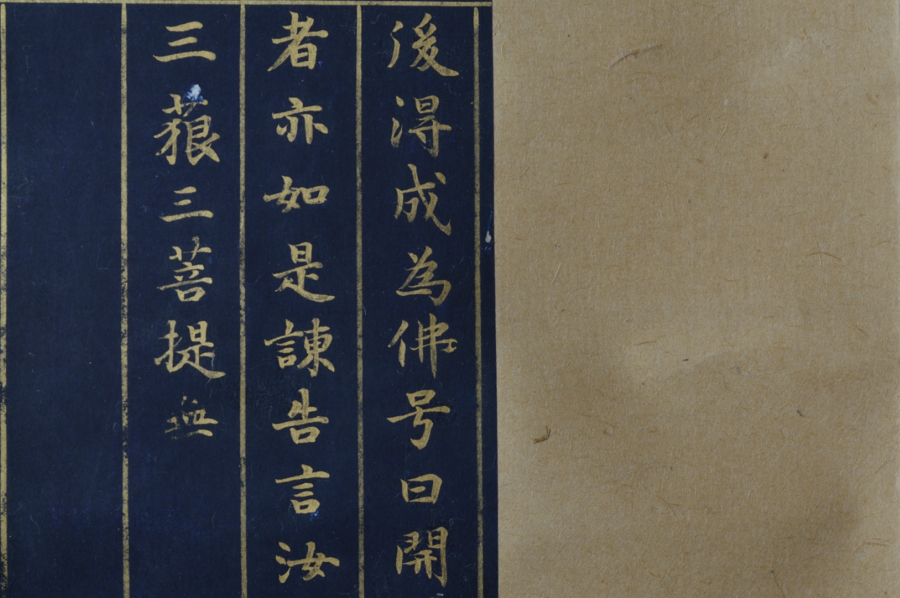 後得成為佛号曰開
者亦如是諫告言汝
三藐三菩提無